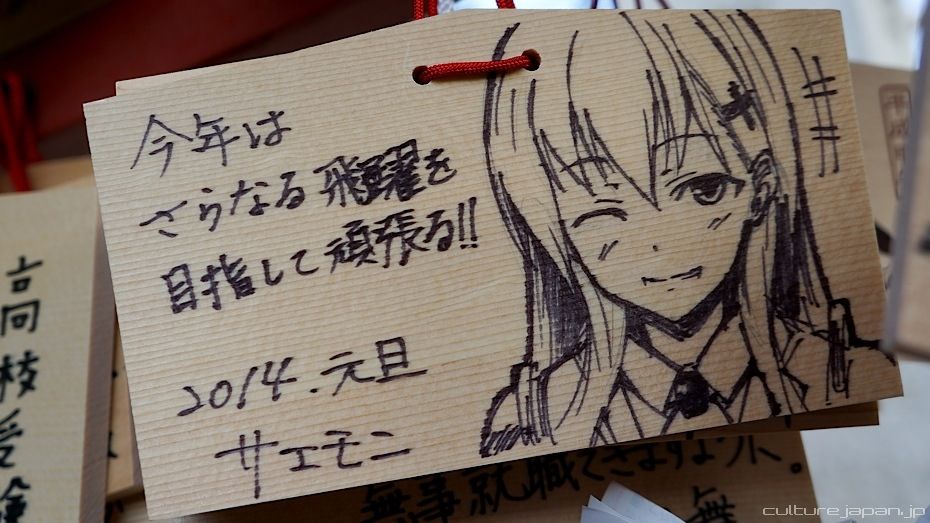 今年は
さらなる飛躍を
目指して頑張る!!
2014.元旦
サエモン
高校受験
無事就職できますように。
culturejapan.jp